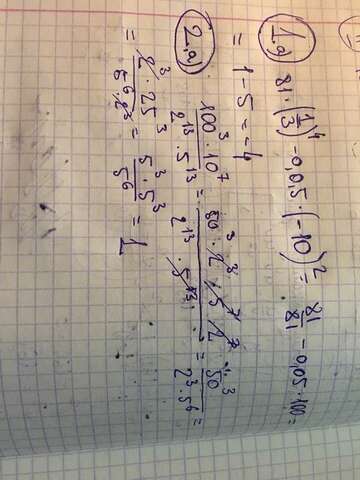 1. a) 81 · (1/3)^4 - 0,05 · (-10)^2 = 81/81 - 0,05 · 100 =
= 1 - 5 = -4
2. a) 100^3 · 10^7 / 2^13 · 5^13 = 50^3 · 2^3 · 5^7 · 2^7 / 2^13 · 5^13 = 50^3 / 2^3 · 5^6 =
= 2^3 · 25^3 / 5^6 · 2^3 = 5^3 · 5^3 / 5^6 = 1